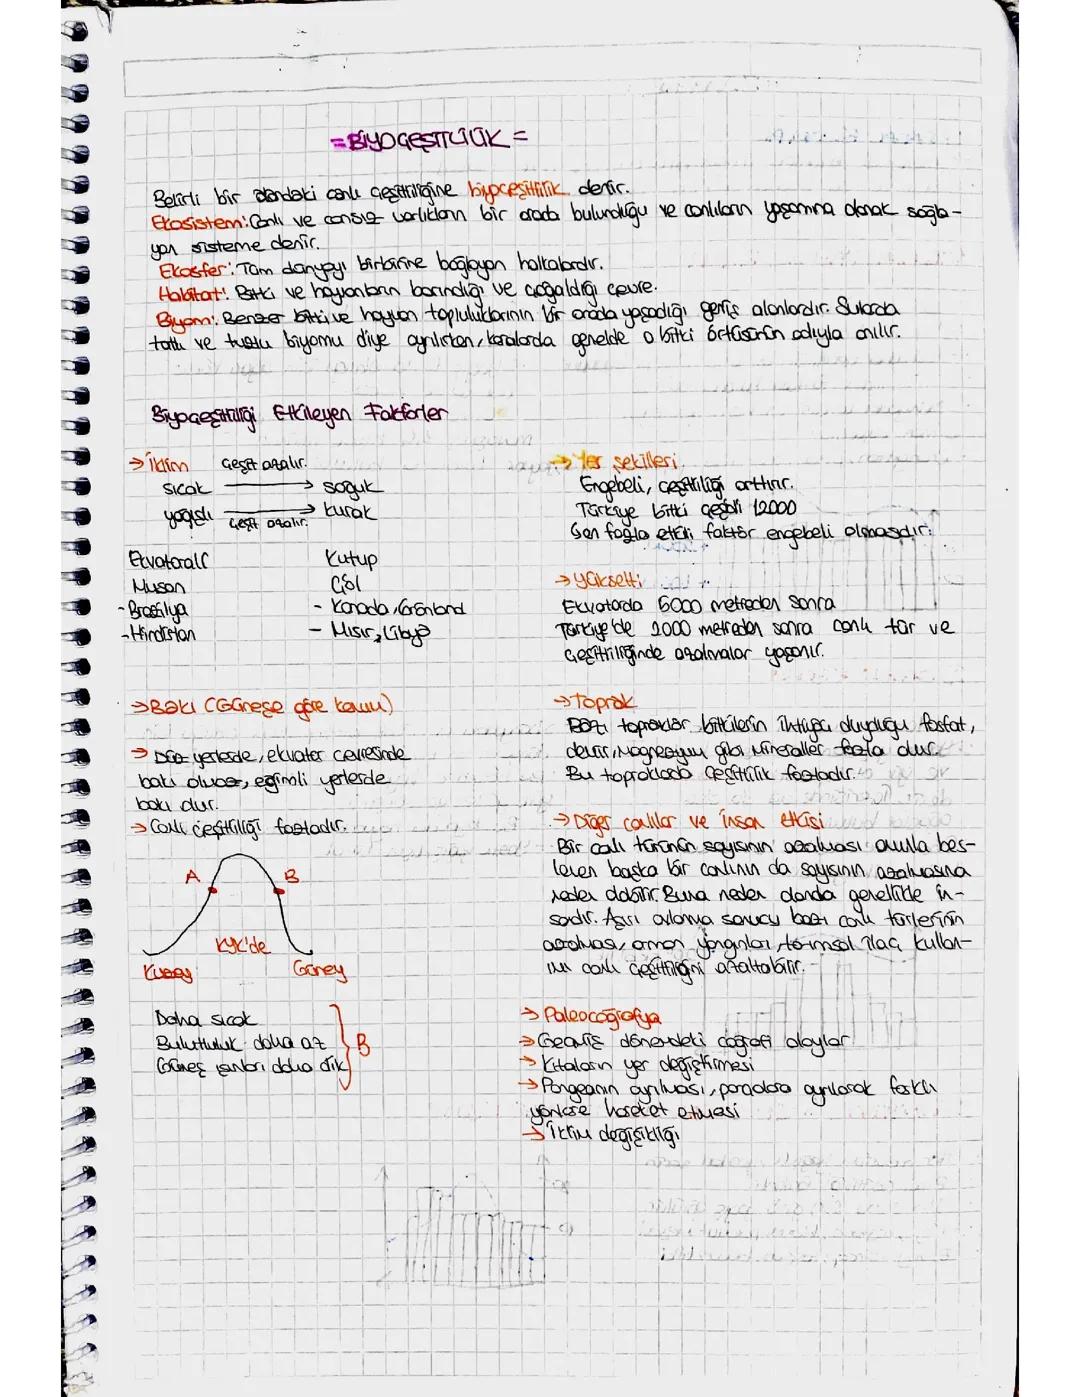 =BİYOÇEŞİTLİLİK=
Belirli bir alandaki canlı çeşitliliğine biyoçeşitlilik denir.
Ekosistem: Canlı ve cansız varlıkların bir arada bulunduğu ve canlıların yaşamına olanak sağla-
yan sisteme denir.
Ekosfer: Tüm dünyayı birbirine bağlayan halkalardır.
Habitat: Bitki ve hayvanların barındığı ve çoğaldığı çevre.
Biyom: Benzer bitki ve hayvan topluluklarının bir arada yaşadığı geniş alanlardır. Sularda
tatlı ve tuzlu biyomu diye ayrılırken, karalarda genelde o bitki örtüsünün adıyla anılır.
Biyoçeşitliliği Etkileyen Faktörler
→ İklim çeşit azalır.
sıcak → soğuk
yağışlı → kurak
çeşit azalır.
Ekvatoral Kutup
Muson Çöl
- Brezilya - Kanada, Grönland
- Hindistan - Mısır, Libya
→ Bakı (Güneşe göre konum)
→ Düz yerlerde, ekvator çevresinde
bakı olmaz, eğimli yerlerde
bakı olur.
→ Canlı çeşitliliği fazladır.
A B
KYK'de
Kuzey Güney
Daha sıcak
Bulutluluk daha az B
Güneş ışınları daha dik
→ Yer şekilleri
Engebeli, çeşitliliği arttırır.
Türkiye bitki çeşidi 12000
Sen fazla etkili faktör engebeli olmasıdır.
→ Yükselti
Ekvatorda 5000 metreden sonra
Türkiye'de 2000 metreden sonra canlı tür ve
çeşitliliğinde azalmalar yaşanır.
→ Toprak
Bazı topraklar bitkilerin ihtiyaç duyduğu fosfat,
demir, magnezyum gibi mineraller fazla olur.
Bu topraklarda çeşitlilik fazladır.
→ Diğer canlılar ve insan etkisi
Bir canlı türünün sayısının azalması onunla bes-
lenen başka bir canlının da sayısının azalmasına
neden olabilir. Buna neden olanda genellikle in-
sandır. Aşırı avlanma sonucu bazı canlı türlerinin
azalması, orman yangınları, tarımsal ilaç kullan-
ımı canlı çeşitliliğini azaltabilir.
→ Paleocoğrafya
→ Geçmiş dönemdeki coğrafi olaylar
→ Kıtaların yer değiştirmesi
→ Pangeanın ayrılması, parçalara ayrılarak farklı
yönlere hareket etmesi
→ İklim değişikliği